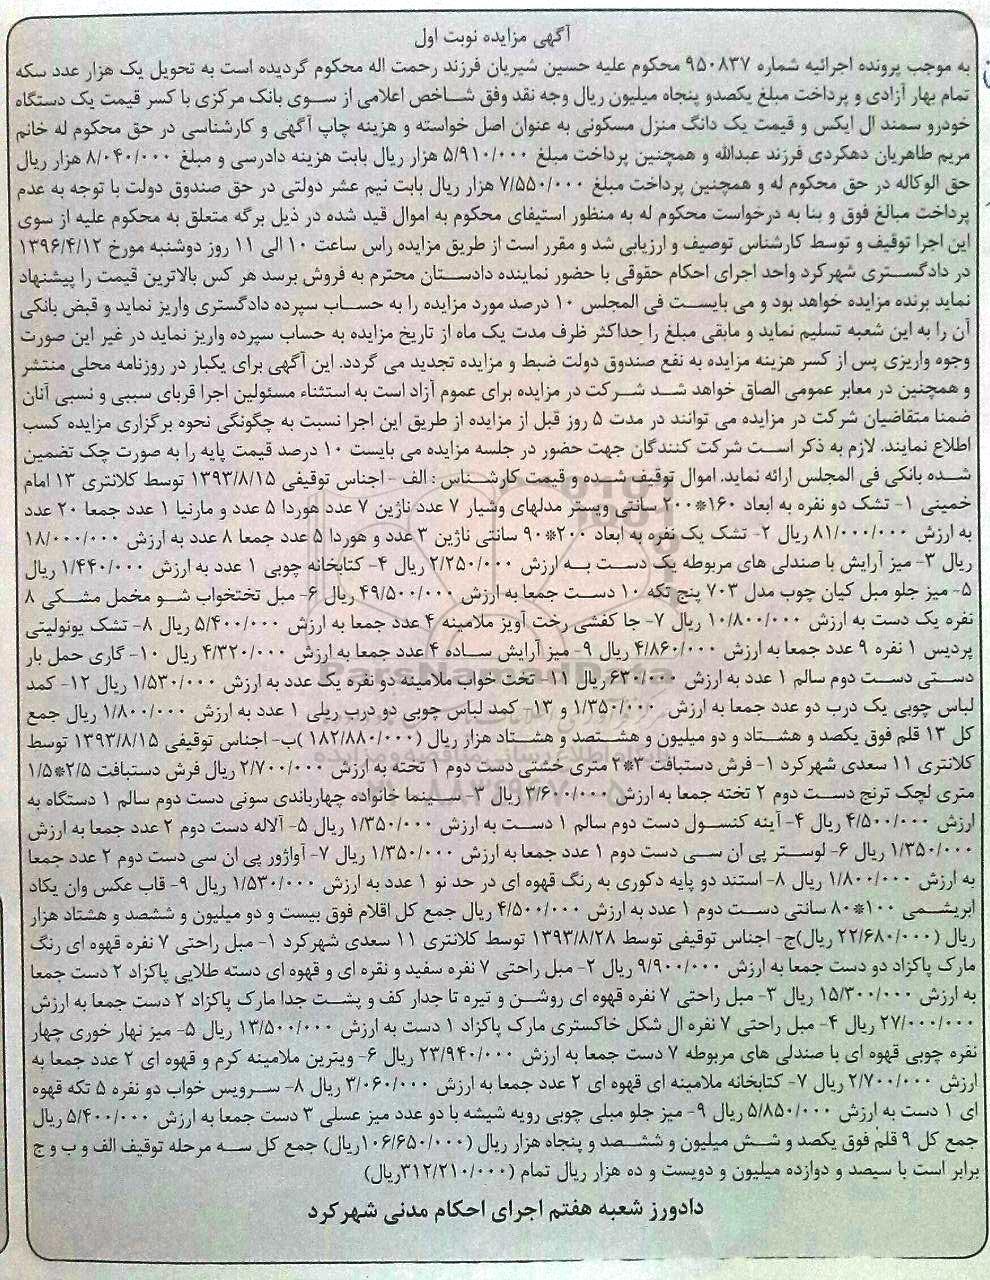 آگهی مزایده نوبت اول
به موجب پرونده اجرائیه شماره ۹۵۰۸۳۷ محکوم علیه حسین شیریان فرزند رحمت اله محکوم گردیده است به تحویل یک هزار عدد سکه
تمام بهار آزادی و پرداخت مبلغ یکصدو پنجاه میلیون ریال وجه نقد وفق شاخص اعلامی از سوی بانک مرکزی با کسر قیمت یک دستگاه
خودرو سمند ال ایکس و قیمت یک دانگ منزل مسکونی به عنوان اصل خواسته و هزینه چاپ آگهی و کارشناسی در حق محکوم له خانم
مریم طاهریان دهکردی فرزند عبدالله و همچنین پرداخت مبلغ ۵/۹۱۰/۰۰۰ هزار ریال بابت هزینه دادرسی و مبلغ ۸/۰۴۰/۰۰۰ هزار ریال
حق الوکاله در حق محکوم له و همچنین پرداخت مبلغ ۷/۵۵۰/۰۰۰ هزار ریال بابت نیم عشر دولتی در حق صندوق دولت با توجه به عدم
پرداخت مبالغ فوق و بنا به درخواست محکوم له به منظور استیفای محکوم به اموال قید شده در ذیل برگه متعلق به محکوم علیه از سوی
این اجرا توقیف و توسط کارشناس توصیف و ارزیابی شد و مقرر است از طریق مزایده راس ساعت ۱۰ الی ۱۱ روز دوشنبه مورخ ۱۳۹۶/۴/۱۲
در دادگستری شهرکرد واحد اجرای احکام حقوقی با حضور نماینده دادستان محترم به فروش برسد هر کس بالاترین قیمت را پیشنهاد
نماید برنده مزایده خواهد بود و می بایست فی المجلس ۱۰ درصد مورد مزایده را به حساب سپرده دادگستری واریز نماید و قبض بانکی
آن را به این شعبه تسلیم نماید و مابقی مبلغ را حداکثر ظرف مدت یک ماه از تاریخ مزایده به حساب سپرده واریز نماید در غیر این صورت
وجوه واریزی پس از کسر هزینه مزایده به نفع صندوق دولت ضبط و مزایده تجدید می گردد. این آگهی برای یکبار در روزنامه محلی منتشر
و همچنین در معابر عمومی الصاق خواهد شد شرکت در مزایده برای عموم آزاد است به استثناء مسئولین اجرا قربای سببی و نسبی آنان
ضمنا متقاضیان شرکت در مزایده می توانند در مدت ۵ روز قبل از مزایده از طریق این اجرا نسبت به چگونگی نحوه برگزاری مزایده کسب
اطلاع نمایند. لازم به ذکر است شرکت کنندگان جهت حضور در جلسه مزایده می بایست ۱۰ درصد قیمت پایه را به صورت چک تضمین
شده بانکی فی المجلس ارائه نماید. اموال توقیف شده و قیمت کارشناس : الف - اجناس توقیفی ۱۳۹۳/۸/۱۵ توسط کلانتری ۱۳ امام
خمینی ۱- تشک دو نفره به ابعاد ۱۶۰*۲۰۰ سانتی ویستر مدلهای وشیار ۷ عدد ناژین ۷ عدد هوردا ۵ عدد و مارنیا ۱ عدد جمعا ۲۰ عدد
به ارزش ۸۱/۰۰۰/۰۰۰ ریال ۲- تشک یک نفره به ابعاد ۲۰۰*۹۰ سانتی ناژین ۳ عدد و هوردا ۵ عدد جمعا ۸ عدد به ارزش ۱۸/۰۰۰/۰۰۰
ریال ۳- میز آرایش با صندلی های مربوطه یک دست به ارزش ۲/۲۵۰/۰۰۰ ریال ۴- کتابخانه چوبی ۱ عدد به ارزش ۱/۴۴۰/۰۰۰ ریال
۵- میز جلو مبل کیان چوب مدل ۷۰۳ پنج تکه ۱۰ دست جمعا به ارزش ۴۹/۵۰۰/۰۰۰ ریال ۶- مبل تختخواب شو مخمل مشکی ۸
نفره یک دست به ارزش ۱۰/۸۰۰/۰۰۰ ریال ۷- جا کفشی رخت آویز ملامینه ۴ عدد جمعا به ارزش ۵/۴۰۰/۰۰۰ ریال ۸- تشک یونولیتی
پردیس ۱ نفره ۹ عدد جمعا به ارزش ۴/۸۶۰/۰۰۰ ریال ۹- میز آرایش ساده ۴ عدد جمعا به ارزش ۴/۳۲۰/۰۰۰ ریال ۱۰- گاری حمل بار
دستی دست دوم سالم ۱ عدد به ارزش ۶۳۰/۰۰۰ ریال ۱۱- تخت خواب ملامینه دو نفره یک عدد به ارزش ۱/۵۳۰/۰۰۰ ریال ۱۲- کمد
لباس چوبی یک درب دو عدد جمعا به ارزش ۱/۳۵۰/۰۰۰ و ۱۳- کمد لباس چوبی دو درب ریلی ۱ عدد به ارزش ۱/۸۰۰/۰۰۰ ریال جمع
کل ۱۳ قلم فوق یکصد و هشتاد و دو میلیون و هشتصد و هشتاد هزار ریال (۱۸۲/۸۸۰/۰۰۰ )ب- اجناس توقیفی ۱۳۹۳/۸/۱۵ توسط
کلانتری ۱۱ سعدی شهرکرد ۱- فرش دستبافت ۳*۲ متری خشتی دست دوم ۱ تخته به ارزش ۲/۷۰۰/۰۰۰ ریال فرش دستبافت ۲/۵*۱/۵
متری لچک ترنج دست دوم ۲ تخته جمعا به ارزش ۳/۶۰۰/۰۰۰ ریال ۳- سینما خانواده چهارباندی سونی دست دوم سالم ۱ دستگاه به
ارزش ۴/۵۰۰/۰۰۰ ریال ۴- آینه کنسول دست دوم سالم ۱ دست به ارزش ۱/۳۵۰/۰۰۰ ریال ۵- آلاله دست دوم ۲ عدد جمعا به ارزش
۱/۳۵۰/۰۰۰ ریال ۶- لوستر پی ان سی دست دوم ۱ عدد جمعا به ارزش ۱/۳۵۰/۰۰۰ ریال ۷- آواژور پی ان سی دست دوم ۲ عدد جمعا
به ارزش ۱/۸۰۰/۰۰۰ ریال ۸- استند دو پایه دکوری به رنگ قهوه ای در حد نو ۱ عدد به ارزش ۱/۵۳۰/۰۰۰ ریال ۹- قاب عکس وان یکاد
ابریشمی ۱۰۰*۸۰ سانتی دست دوم ۱ عدد به ارزش ۴/۵۰۰/۰۰۰ ریال جمع کل اقلام فوق بیست و دو میلیون و ششصد و هشتاد هزار
ریال (۲۲/۶۸۰/۰۰۰ ریال)ج- اجناس توقیفی توسط ۱۳۹۳/۸/۲۸ توسط کلانتری ۱۱ سعدی شهرکرد ۱- مبل راحتی ۷ نفره قهوه ای رنگ
مارک پاکزاد دو دست جمعا به ارزش ۹/۹۰۰/۰۰۰ ریال ۲- مبل راحتی ۷ نفره سفید و نقره ای و قهوه ای دسته طلایی پاکزاد ۲ دست جمعا
به ارزش ۱۵/۳۰۰/۰۰۰ ریال ۳- مبل راحتی ۷ نفره قهوه ای روشن و تیره تا جدار کف و پشت جدا مارک پاکزاد ۲ دست جمعا به ارزش
۲۷/۰۰۰/۰۰۰ ریال ۴- مبل راحتی ۷ نفره ال شکل خاکستری مارک پاکزاد ۱ دست به ارزش ۱۳/۵۰۰/۰۰۰ ریال ۵- میز نهار خوری چهار
نفره چوبی قهوه ای با صندلی های مربوطه ۷ دست جمعا به ارزش ۲۳/۹۴۰/۰۰۰ ریال ۶- ویترین ملامینه کرم و قهوه ای ۲ عدد جمعا به
ارزش ۲/۷۰۰/۰۰۰ ریال ۷- کتابخانه ملامینه ای قهوه ای ۲ عدد جمعا به ارزش ۳/۰۶۰/۰۰۰ ریال ۸- سرویس خواب دو نفره ۵ تکه قهوه
ای ۱ دست به ارزش ۵/۸۵۰/۰۰۰ ریال ۹- میز جلو مبلی چوبی رویه شیشه با دو عدد میز عسلی ۳ دست جمعا به ارزش ۵/۴۰۰/۰۰۰ ریال
جمع کل ۹ قلم فوق یکصد و شش میلیون و ششصد و پنجاه هزار ریال (۱۰۶/۶۵۰/۰۰۰ریال) جمع کل سه مرحله توقیف الف و ب و ج
برابر است با سیصد و دوازده میلیون و دویست و ده هزار ریال تمام (۳۱۲/۲۱۰/۰۰۰ریال)
دادورز شعبه هفتم اجرای احکام مدنی شهرکرد